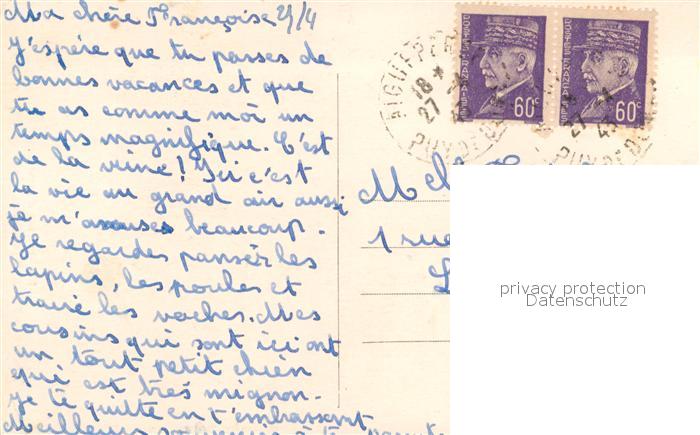 Ma chère Françoise 27/4
J'espère que tu passes de
bonnes vacances et que
tu as comme moi un
temps magnifique. C'est
de la veine! Ici c'est
la vie au grand air aussi
je m'amuse beaucoup.
Je regardes panser les
lapins, les poules et
traire les vaches. Mes
cousins qui sont ici ont
un tout petit chien
qui est très mignon.
Je te quitte en t'embrassant
Meilleurs
POSTES FRANÇAISES
60c
POSTES FRANÇAISES
60c
AIGUEPERSE
18*
27-4
PUY DE DOME
27-4
PUY DE DOME
Melle
1 rue
privacy protection
Datenschutz